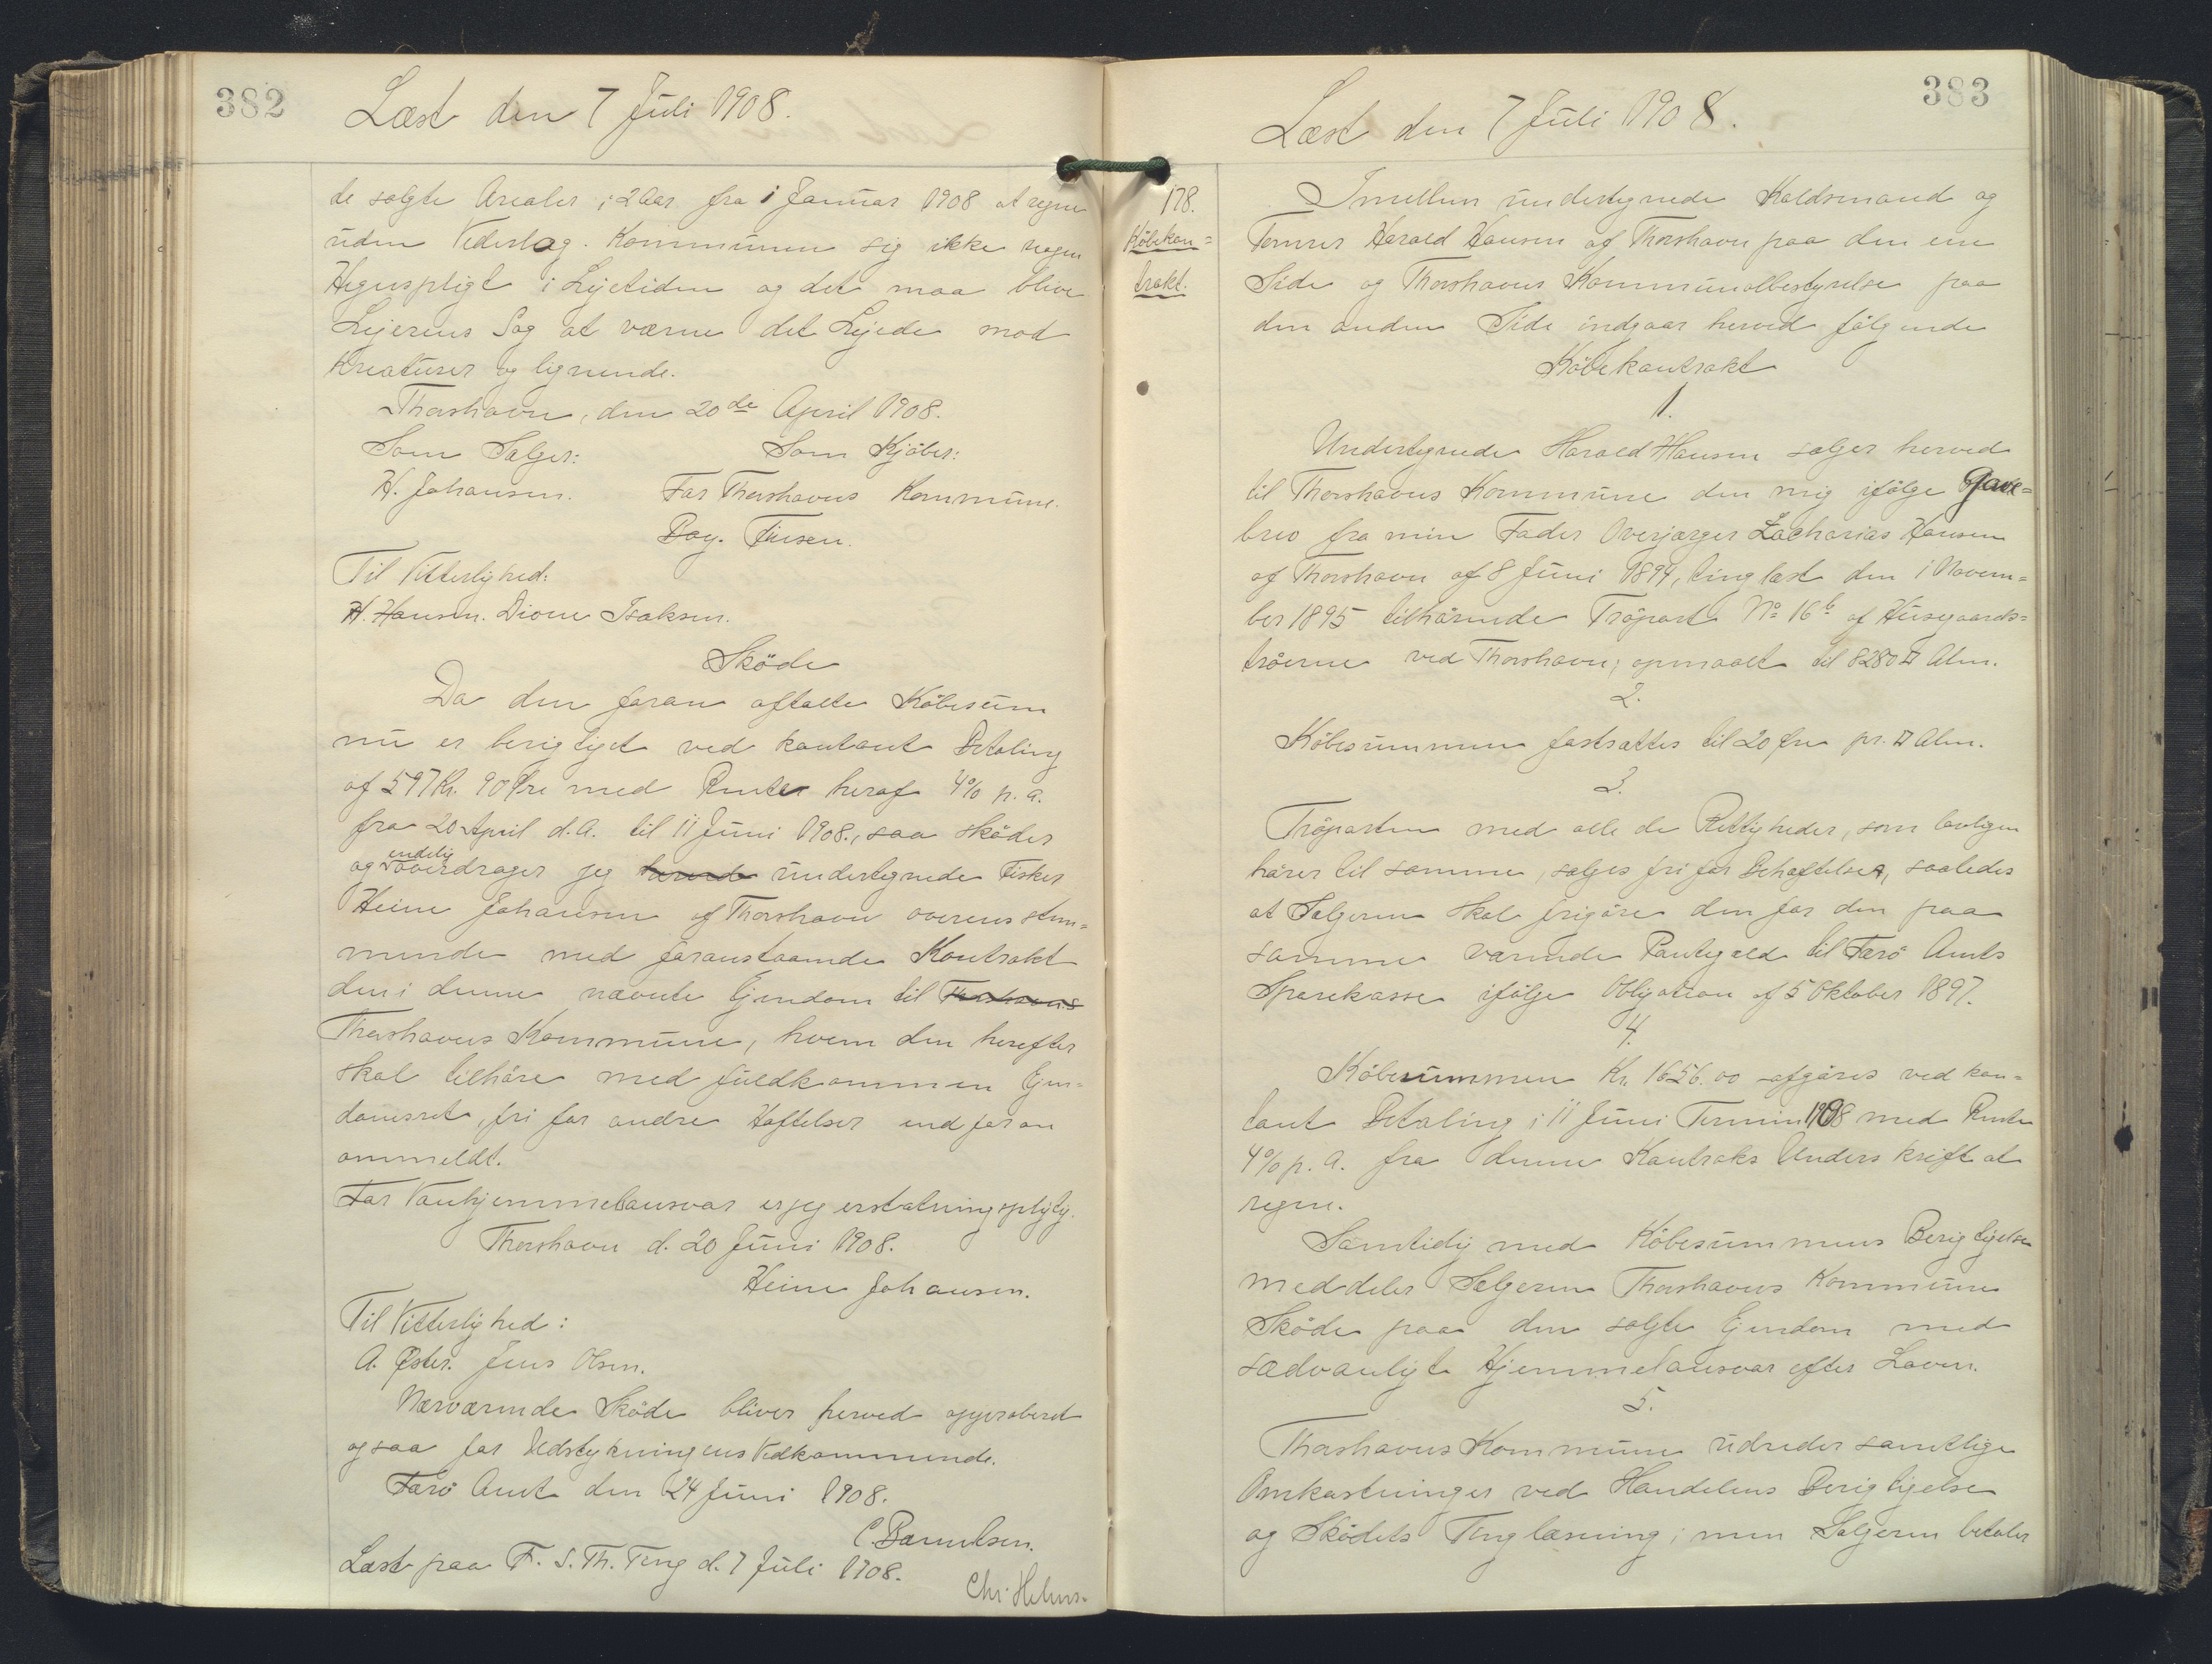 382
Læst den 7 Juli 1908.
de solgte Arealer i 2 Aar fra 1 Januar 1908 at regne
uden Vederlag. Kommunen sig ikke nogen
Hegnspligt i Lejetiden og det maa blive
Lejerens Sag at værne det Lejede mod
Kreaturer og lignende.
Thorshavn, den 20de April 1908.
Som Sælger: Som Kjöber:
H. Johansen. For Thorshavns Kommune.
Til Vitterlighed:
H. Hansen. Dione Isaksen.
Sköde
Da den foran aftalte Köbesum
nu er berigtiget ved kontant Betaling
af 597 Kr. 90 Øre med Renter heraf 4% p. a.
fra 20 April d. A. til 11 Juni 1908., saa sköder
og endelig overdrager jeg herved undertegnede Fisker
Heine Johansen af Thorshavn overensstem=
mende med foranstaaende Kontrakt
den i denne nævnte Ejendom til Thorshavns
Thorshavns Kommune, hvem den herefter
skal tilhöre med fuldkommen Ejen=
domsret, fri for andre Hæftelser end foran
ommeldt.
For Vanhjemmelsansvar er jeg erstatningspligtig.
Thorshavn d. 20 Juni 1908.
Heine Johansen.
Til Vitterlighed:
A. Øster. Jens Olsen.
Nærværende Sköde bliver herved approberet
ogsaa for Udstykningens Vedkommende.
Færö Amt den 24 Juni 1908.
C. Bærentsen.
Læst paa F. S. Th. Ting d. 7 Juli 1908.
Chr. Helms.
383
Læst den 7 Juli 1908.
178.
Köbekon=
trakt.
Imellem undertegnede Koldsmand og
Tømrer Harald Hansen af Thorshavn paa den ene
Side og Thorshavns Kommunalbestyrelse paa
den anden Side indgaar herved fölgende
Köbekontrakt
1.
Undertegnede Harald Hansen sælger herved
til Thorshavns Kommune den mig ifölge Gave=
brev fra min Fader Overjæger Zacharias Hansen
af Thorshavn af 8 Juni 1894, tinglæst den 1 Novem=
ber 1895 tilhörende Tröpart No 16b af Husgaards=
tröerne ved Thorshavn, opmaalt til 8280 □ Alen.
2.
Köbesummen fastsættes til 20 Øre pr. □ Alen.
3.
Tröparten med alle de Rettigheder, som lovligen
hörer til samme, sælges fri for Behæftelser, saaledes
at Sælgeren skal frigöre den for den paa
samme værende Pantegæld til Færö Amts
Sparekasse ifölge Obligation af 5 Oktober 1897.
4.
Köbesummen Kr. 1656.00 afgöres ved kon=
tant Betaling i 11 Juni Termin 1908 med Renter
4% p. A. fra denne Kontrakts Underskrift at
regne.
Samtidig med Köbesummens Berigtigelse
meddeler Sælgeren Thorshavns Kommune
Sköde paa den solgte Ejendom med
sædvanligt Hjemmelsansvar efter Loven.
5.
Thorshavns Kommune udreder samtlige
Omkostninger ved Handelens Berigtigelse
og Sködets Tinglæsning; men Sælgeren betaler